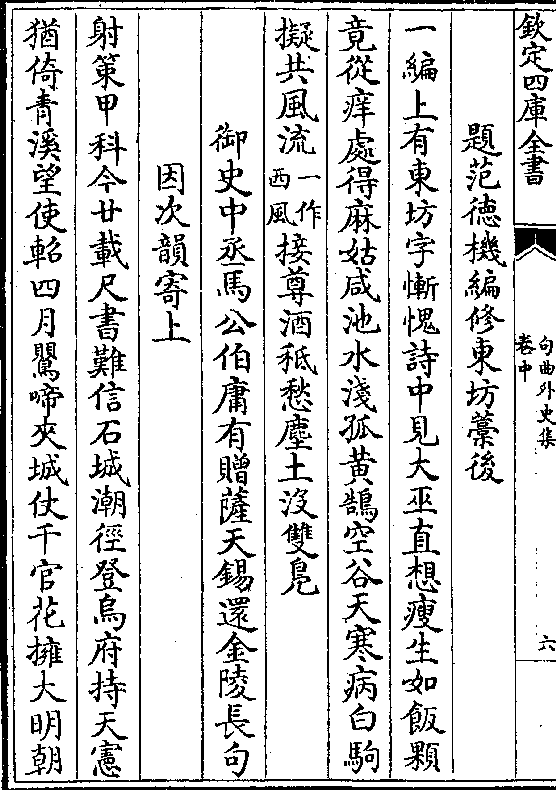 欽定四庫全書
句曲外史集
卷中
六
題范徳機編修東坊藁後
一編上有東坊字慚愧詩中見大巫直想瘦生如飯顆
竟從痒處得麻姑咸池水淺孤黄鵠空谷天寒病白駒
擬共風流一作西風接尊酒秖愁塵土沒雙鳬
御史中丞馬公伯庸有贈薩天錫還金陵長句
因次韻寄上
射策甲科今廿載尺書難信石城潮徑登烏府持天憲
猶倚青溪望使軺四月鸎啼夾城仗千官花擁大明朝